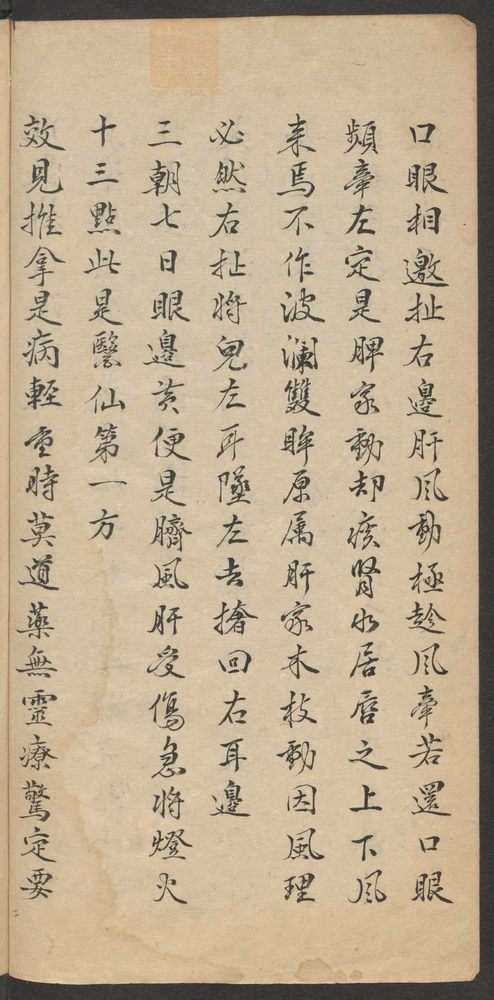 口眼相邀扯右邊肝风動極趁风牽若還口眼
頻牽左定是脾家動却痰腎水居唇之上下风
来焉不作波瀾雙眸原属肝家木枝動因風理
必然右扯將兒左耳墜左去搶回右耳邊
三朝七日眼邊黃便是臍風肝受傷急将燈火
十三點此是醫仙第一方
效見推拿是病輕重時莫道藥無靈療驚定要